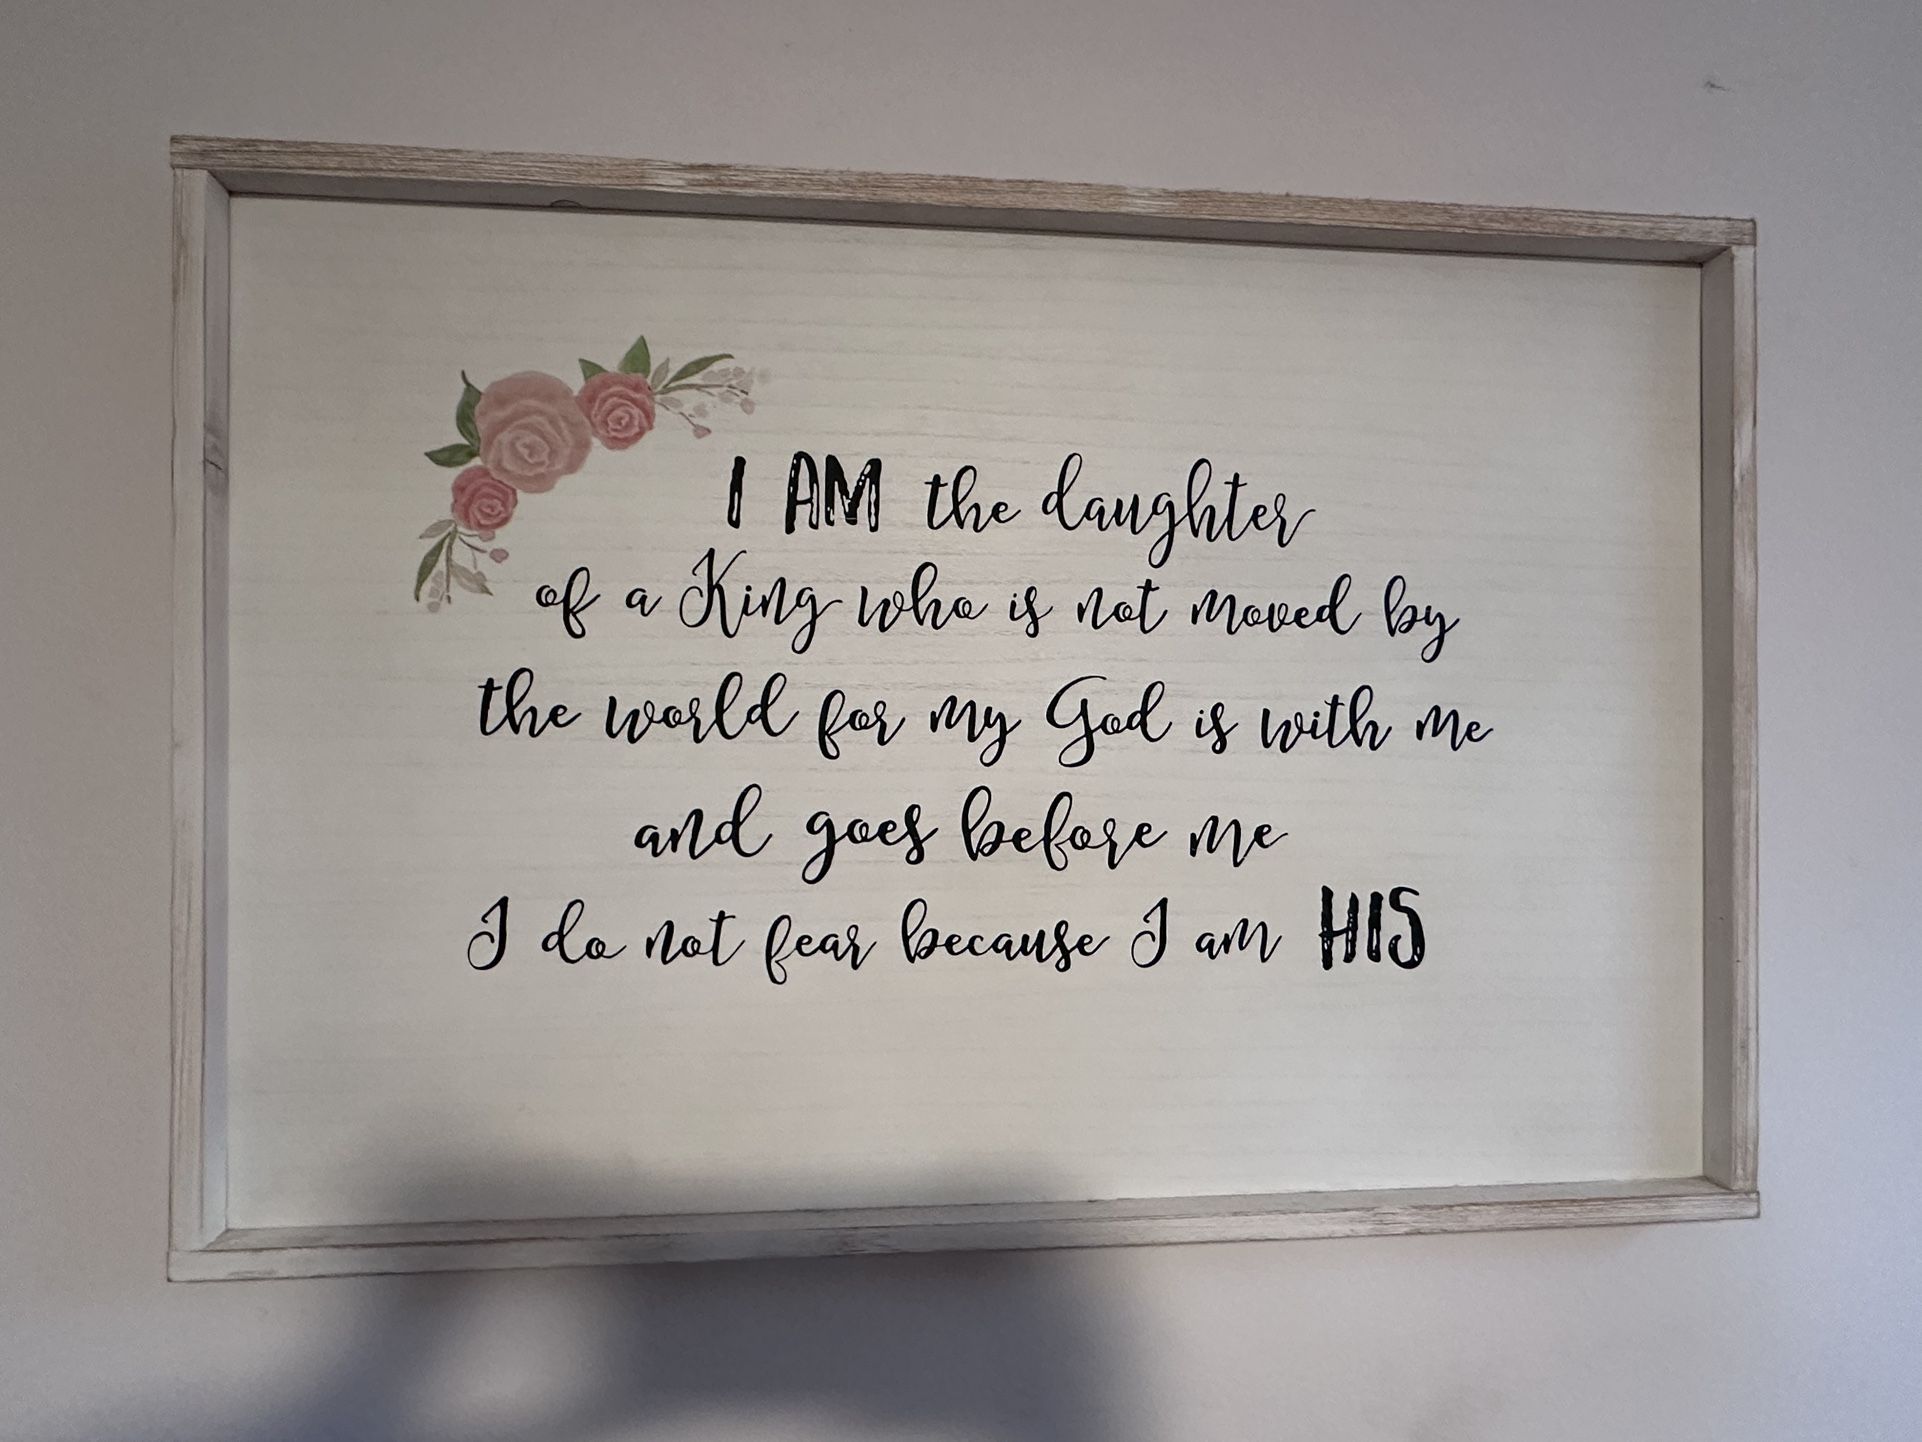 I AM the daughter
of a King who is not moved by
the world for my God is with me
and goes before me
I do not fear because I am HIS